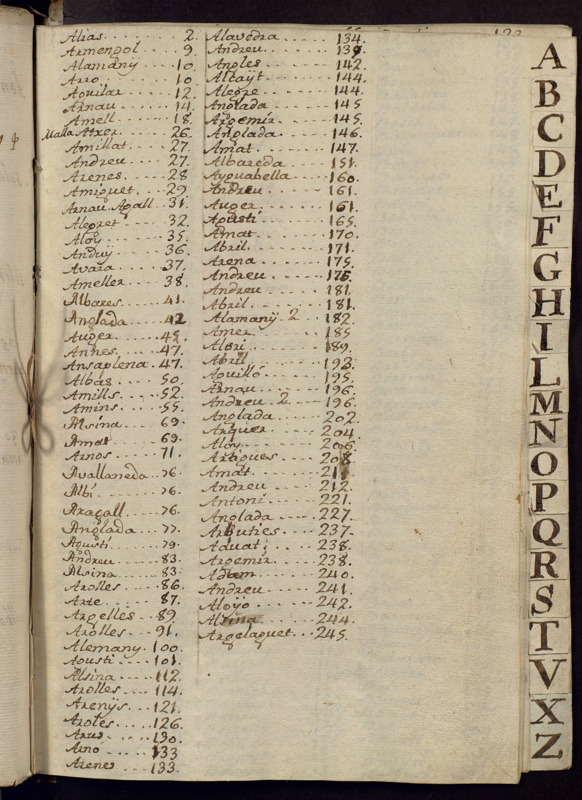 Alias 2.
Armengol 9.
Alamanÿ 10
Arro 10
Aguilar 12.
Arnau 14.
Amell 18.
Malla Atxer 26.
Amillat 27.
Andreu 27.
Arenes 28
Amiguet 29
Arnau Agall 31.
Alegret 32.
Aloÿ 35.
Andruÿ 36.
Avara 37.
Ameller 38.
Albares 41.
Anglada 42
Auger 45.
Annes 47.
Ansaplena 47.
Albás 50.
Amills 52.
Amins 55.
Alsina 69.
Amat 69.
Arnos 71.
Avallaneda 76.
Albi 76.
Aragall 76.
Anglada 77.
Agustí 79.
Andreu 83.
Alsina 83.
Arolles 86.
Arte 87.
Argelles 89.
Arolles 91.
Alemany 100.
Agusti 101.
Alsina 112.
Arolles 114.
Arenÿs 121.
Arotes 126.
Arus 130.
Arnó 133
Arenes 133.
Alavedra 134.
Andreu 139.
Angles 142.
Altaÿt 144.
Alegre 144.
Anglada 145
Argemir 145.
Anglada 146.
Amat 147.
Albareda 151.
Ayguabella 160.
Andreu 161.
Auger 161.
Agustí 165.
Amat 170.
Abril 171.
Arena 175.
Andreu 175.
Andreu 181.
Abril 181.
Alamanÿ 2 182.
Amer 185
Alari 189.
Abril 193.
Aguilló 195.
Arnau 196.
Andreu 2 196.
Anglada 202.
Arquer 204.
Aloy 206.
Artigues 208.
Amat 211
Andreu 212.
Antoni 221.
Anglada 227.
Arbuties 237.
Aduat 238.
Argemir 238.
Adam 240.
Andreu 241.
Aloÿo 242.
Alsina 244.
Argelaguet 245.
A
B
C
D
E
F
G
H
I
L
M
N
O
P
Q
R
S
T
V
X
Z